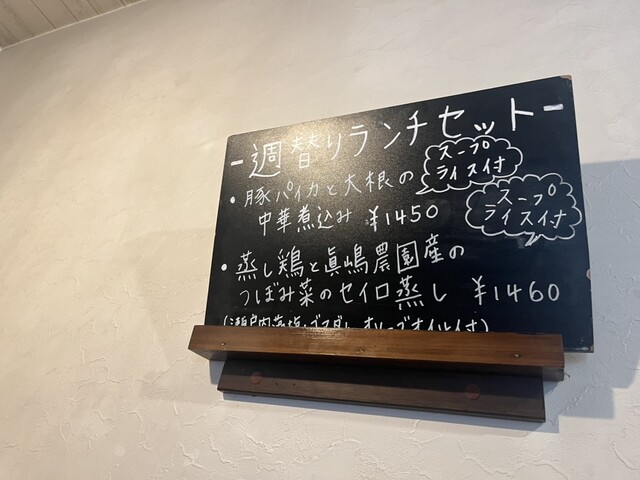 -週替りランチセット-
・豚パイカと大根の
中華煮込み ¥1450
スープ
ライス付
・蒸し鶏と眞嶋農園産の
つぼみ菜のセイロ蒸し ¥1460
スープ
ライス付
(瀬戸内藻塩・ゴマダレ オリーブオイル付)